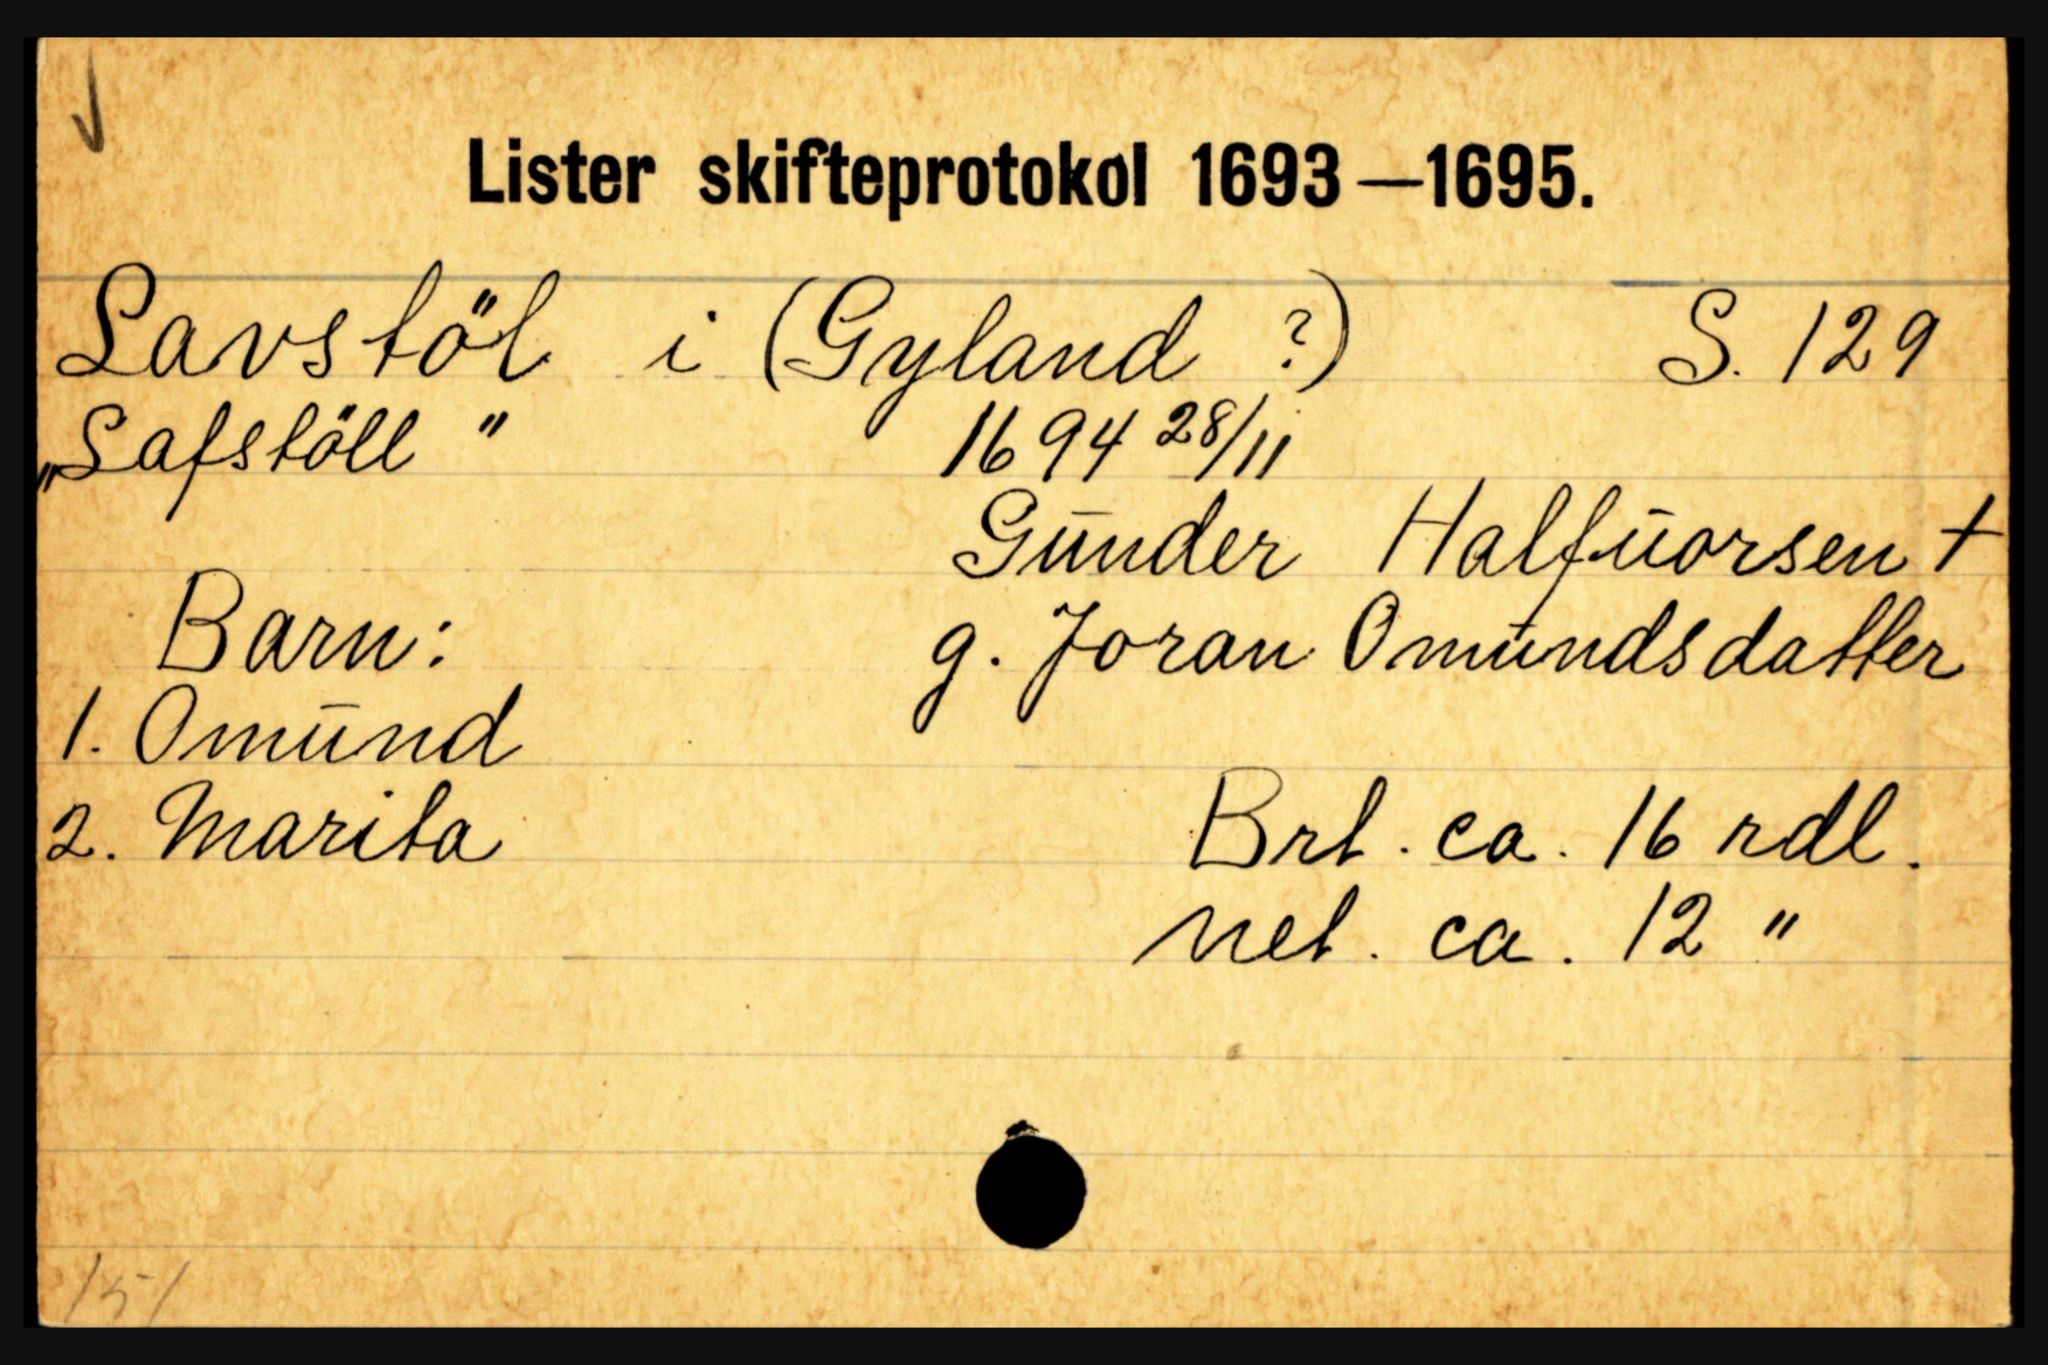 Lister skifteprotokol 1693—1695.
Lavstöl i (Gyland ?) S. 129
„Lafstöll" 1694 28/11
Gunder Halfuorsen +
Barn: g. Joran Omundsdatter
1. Omund
2. Marita Brt. ca. 16 rdl.
net. ca. 12 "
151